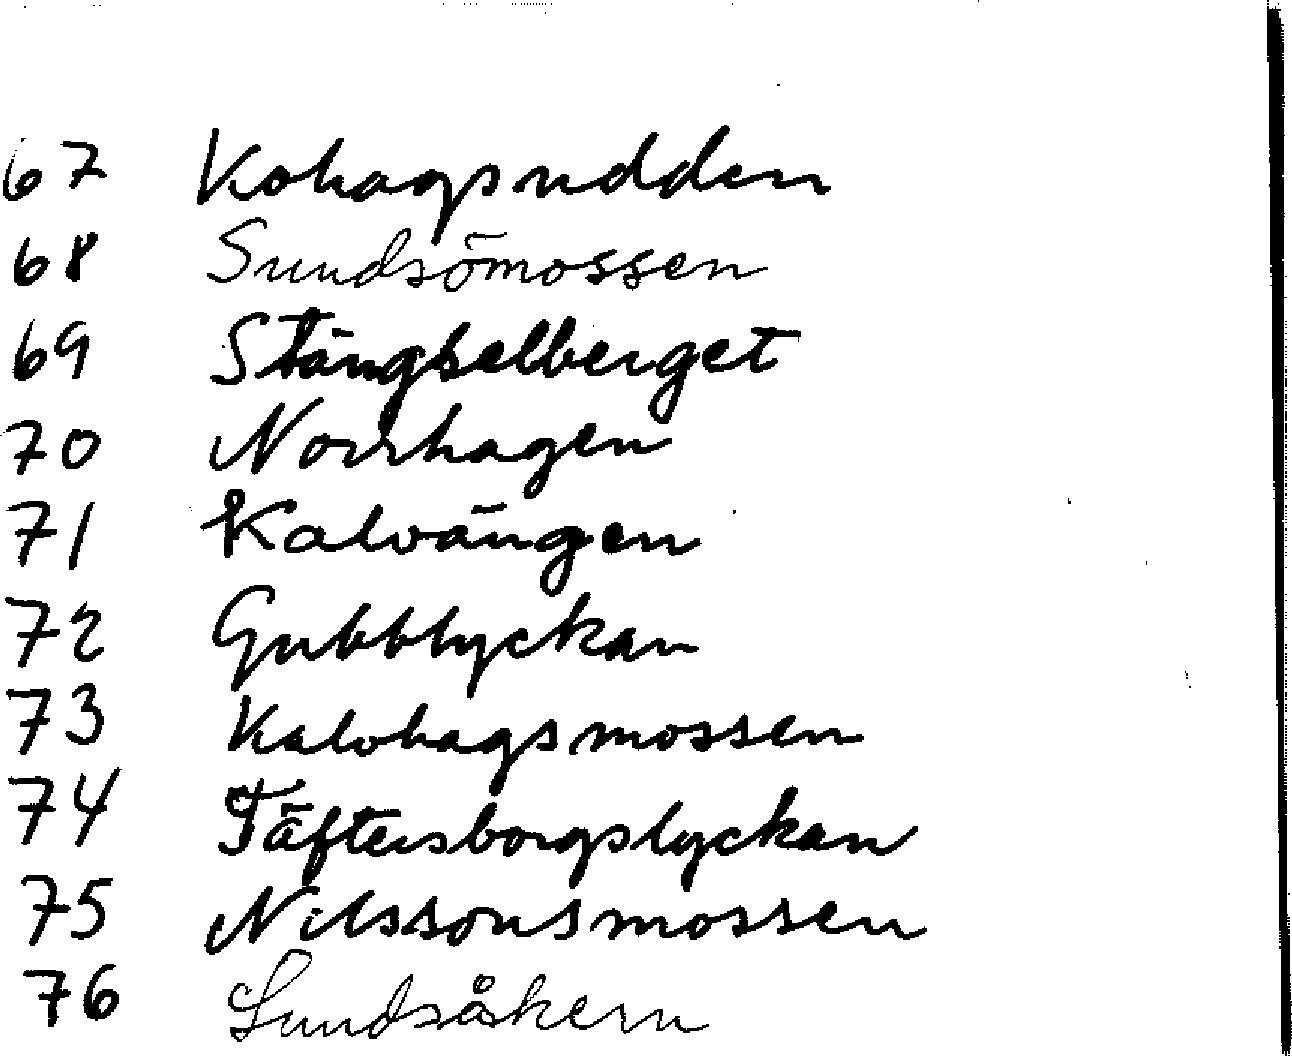 67 Kohagsudden
68 Sundsömossen
69 Stängselberget
70 Norrhagen
71 Kalvängen
72 Gubblyckan
73 Kalvhagsmossen
74 Täftersborgslyckan
75 Nilssonsmossen
76 Lundsåkern